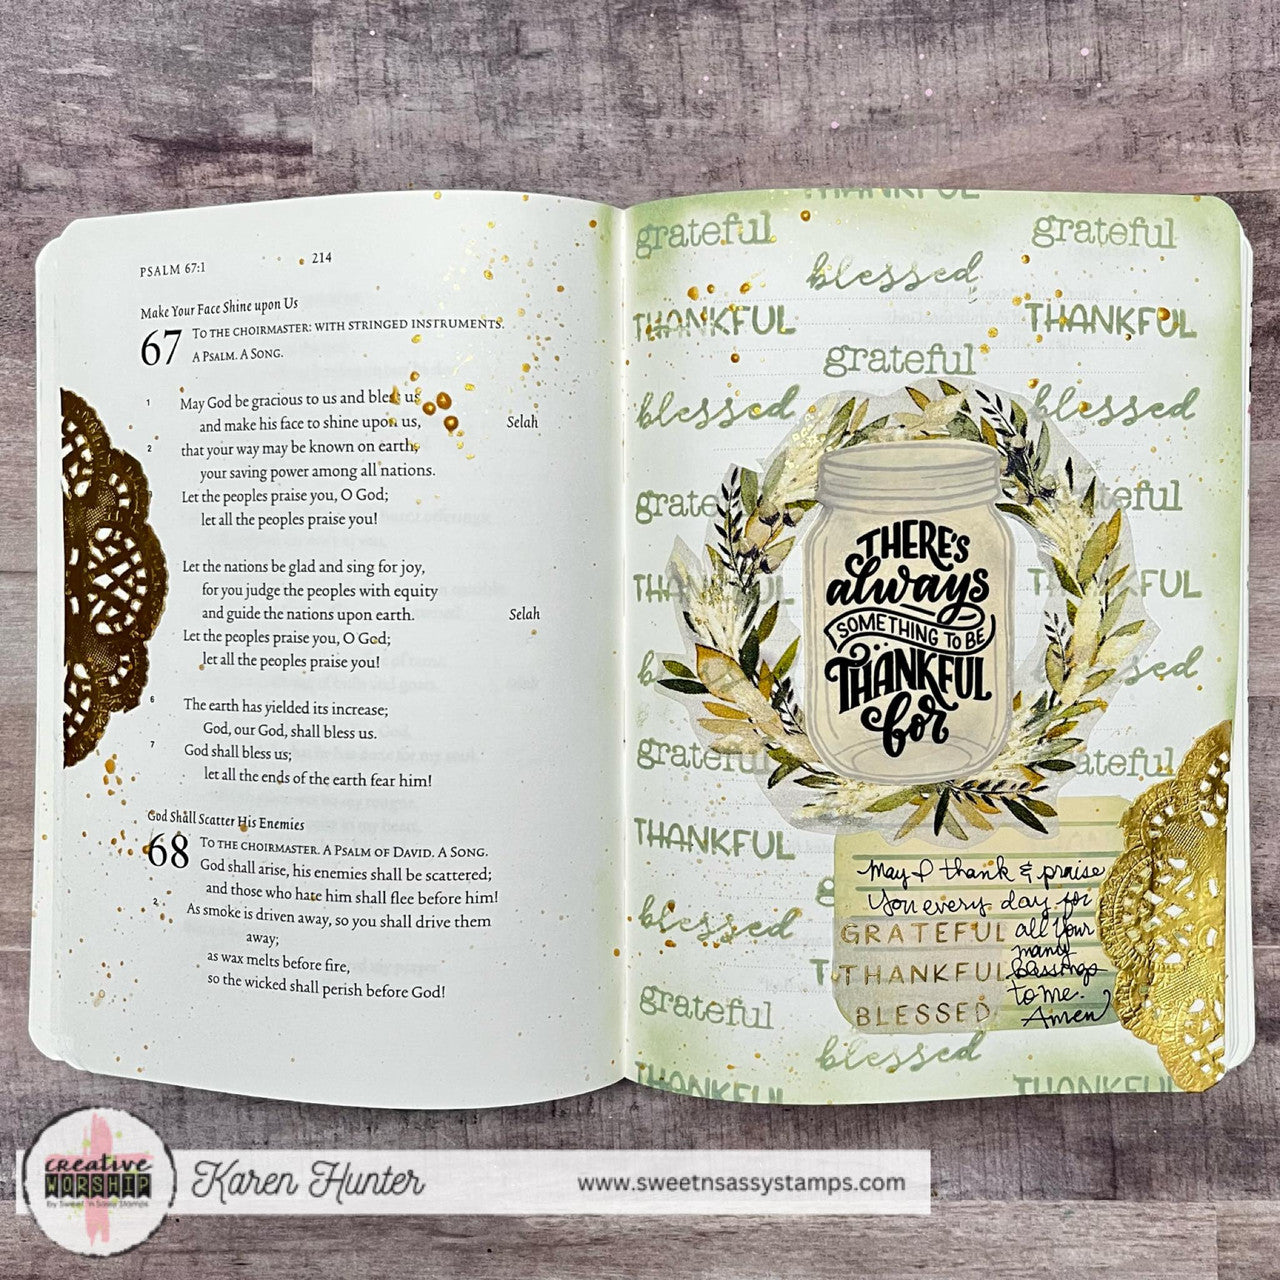 PSALM 67:1
214
Make Your Face Shine upon Us
67 TO THE CHOIRMASTER: WITH STRINGED INSTRUMENTS.
A PSALM. A SONG.
1 May God be gracious to us and bless us
and make his face to shine upon us, Selah
2 that your way may be known on earth,
your saving power among all nations.
Let the peoples praise you, O God;
let all the peoples praise you!
Let the nations be glad and sing for joy,
for you judge the peoples with equity
and guide the nations upon earth. Selah
Let the peoples praise you, O God;
let all the peoples praise you!
6 The earth has yielded its increase;
God, our God, shall bless us.
7 God shall bless us;
let all the ends of the earth fear him!
God Shall Scatter His Enemies
68 TO THE CHOIRMASTER. A PSALM OF DAVID. A SONG.
God shall arise, his enemies shall be scattered;
and those who hate him shall flee before him!
2 As smoke is driven away, so you shall drive them
away;
as wax melts before fire,
so the wicked shall perish before God!
THANKFUL
grateful grateful
blessed
THANKFUL THANKFUL
grateful
blessed blessed
grateful
THANKFUL
blessed
grateful grateful
THANKFUL
blessed
grateful
blessed
THANKFUL THANKFUL
THERE'S
always
SOMETHING TO BE
THANKFUL
for
May I thank & praise
You every day for
GRATEFUL all Your
many
THANKFUL blessings
to me.
BLESSED Amen
creative
WORSHIP
By Sweet 'n Sassy Stamps
Karen Hunter
www.sweetnsassystamps.com